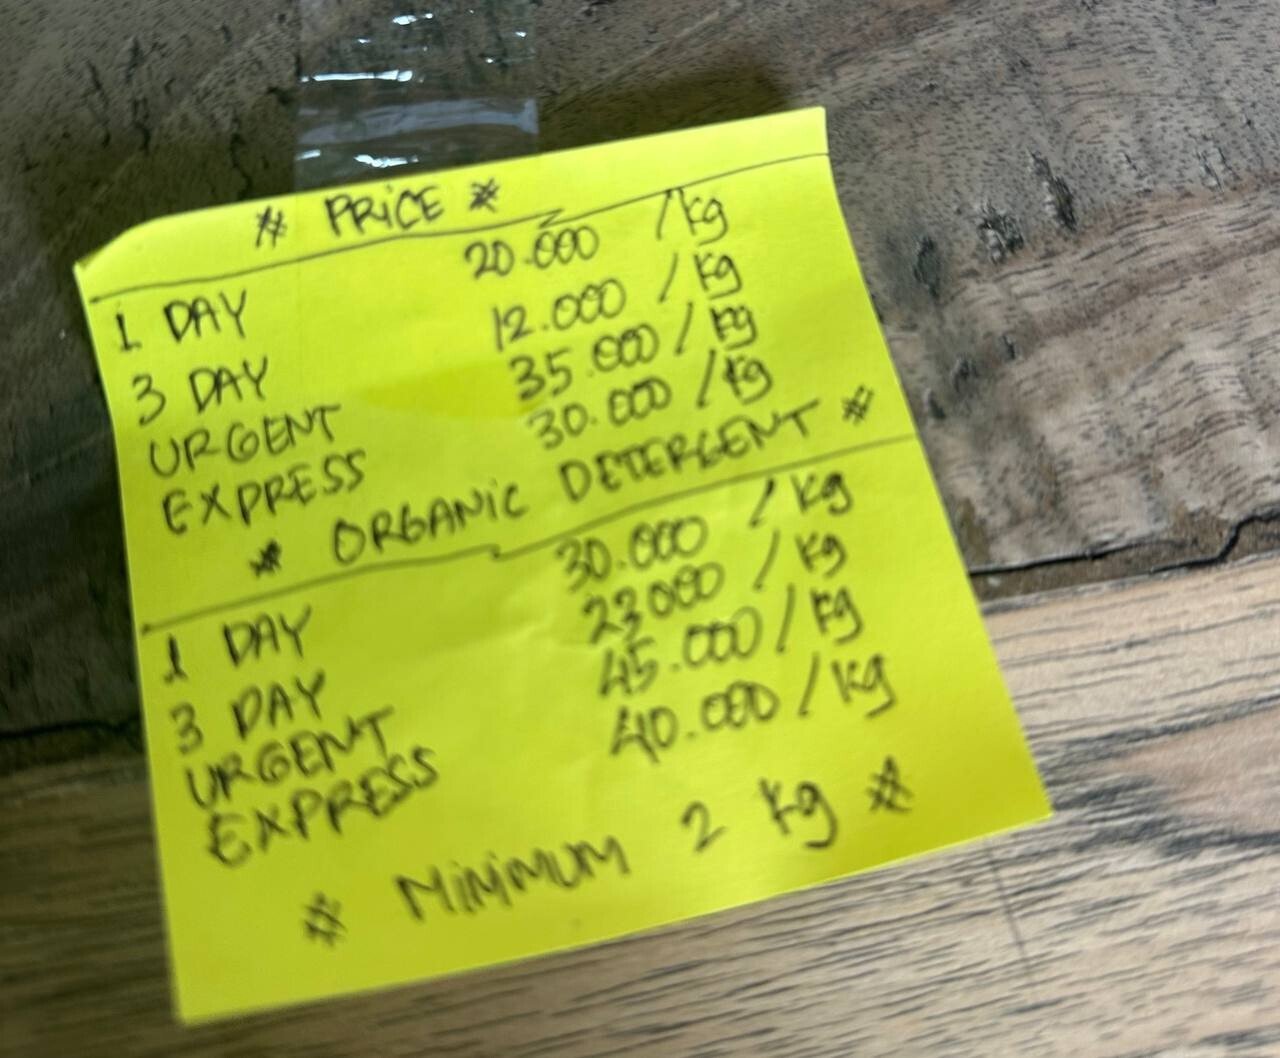 * PRiCE *
1 DAY 20.000 /kg
3 DAY 12.000 /kg
URGENT 35.000 /kg
EXPRESS 30.000 /kg
* ORGANiC DETERGENT *
1 DAY 30.000 /kg
3 DAY 23000 /kg
URGENT 45.000 /kg
EXPRESS 40.000 /kg
* MiNiMUM 2 kg *